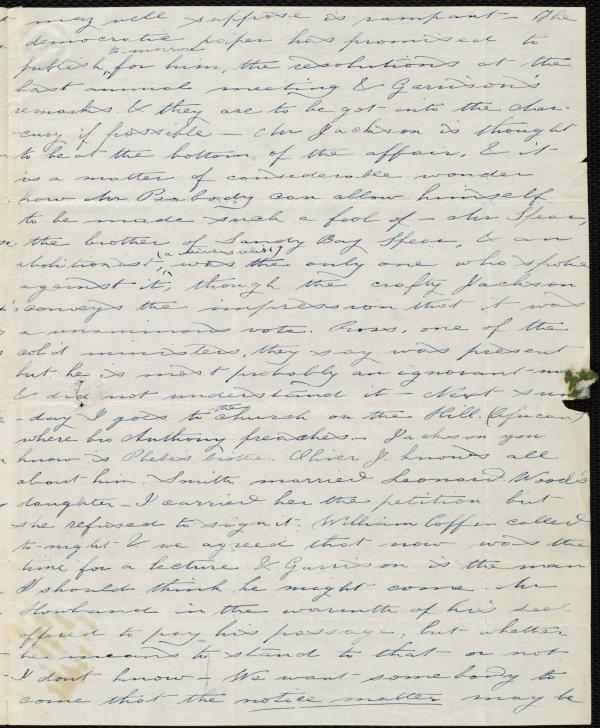 may well suppose is rampant - The
democratic paper has promised to
publish, to-morrow for him, the resolutions at the
last annual meeting & Garrison's
remarks. & they are to be got into the Mer-
cury if possible - Mr Jackson is thought
to be at the bottom of the affair, & it
is a matter of considerable wonder
how Mr Peabody can allow himself
to be made such a fool of - Mr Spear,
the brother of Sandy Bay Spear, & an
abolitionist, (a universalist) was the only one who spoke
against it, though the crafty Jackson
conveys the impression that it was
a unanimous vote. Ross, one of the
col'd ministers, they say was present
but he is most probably an ignorant
& did not understand it - Next sun
-day I goes to the Church on the Hill. (African)
where bro Anthony preaches. - Jackson you
know is Phebe's brother. Oliver J. knows all
about him. Smith married Leonard Wood's
daughter - I carried her the petition but
she refused to sign it. William Coffin called
to-night & we agreed that now was the
time for a lecture & Garrison is the man
I should think he might come. Mr
Howland in the warmth of his zeal
offered to pay his passage, but whether
he means to stand to that or not
I dont know - We want somebody to
come that the notice matter may be